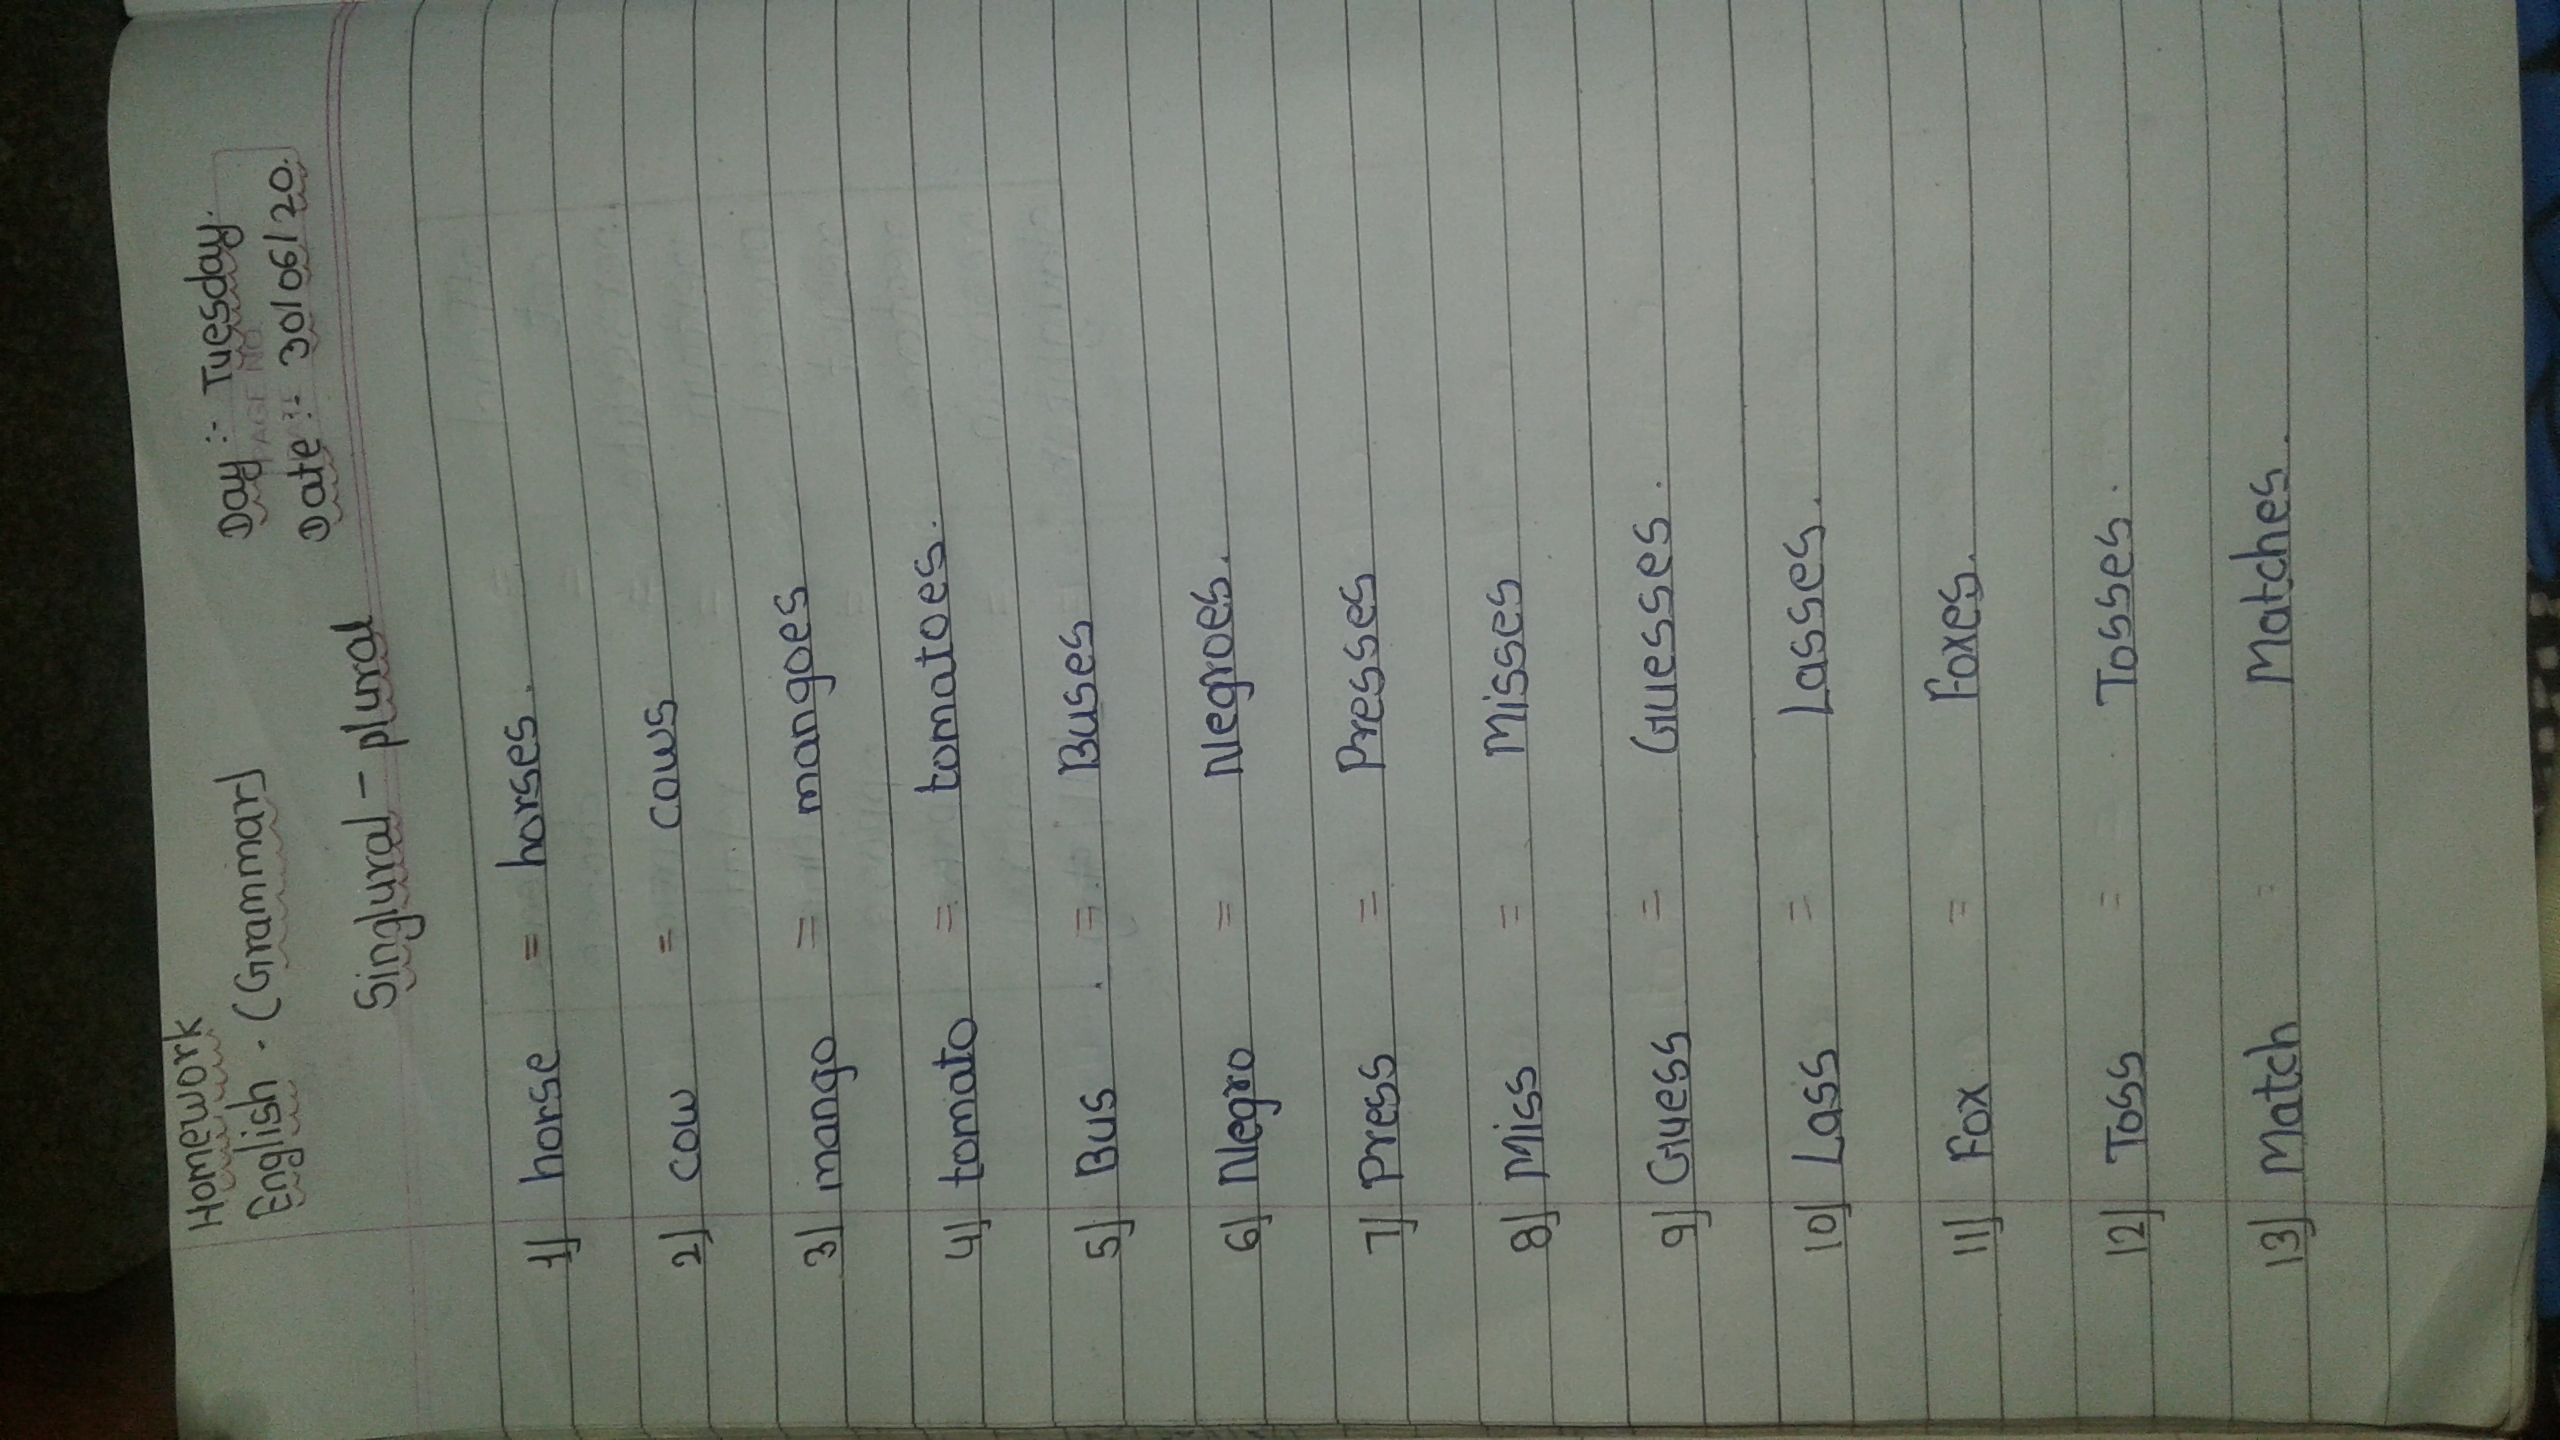 Homework
English. (Grammar)
Day :- Tuesday.
Date :- 30/06/20.
Singlural - plural
1) horse = horses.
2) cow = cows
3) mango = mangoes
4) tomato = tomatoes.
5) Bus = Buses
6) Negro = Negroes.
7) Press = Presses
8) Miss = Misses
9) Guess = Guesses.
10) Lass = Lasses.
11) Fox = Foxes.
12) Toss = Tosses.
13) Match = Matches.